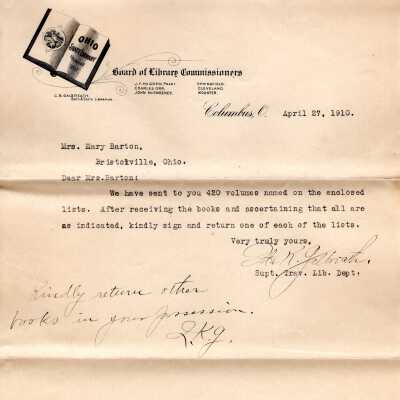 OHIO
Board of Library Commissioners
J. F. McGREW, PREST.
CHARLES ORR,
JOHN McSWEENEY,
SPRINGFIELD
CLEVELAND
WOOSTER
C. B. GALBREATH,
Columbus, O. April 27, 1910.
Mrs. Mary Barton,
Bristolville, Ohio.
Dear Mrs.Barton:
We have sent to you 420 volumes named on the enclosed
lists. After receiving the books and ascertaining that all are
as indicated, kindly sign and return one of each of the lists.
Very truly yours,
Supt. Trav. Lib. Dept.
Kindly return other
books in your possession.